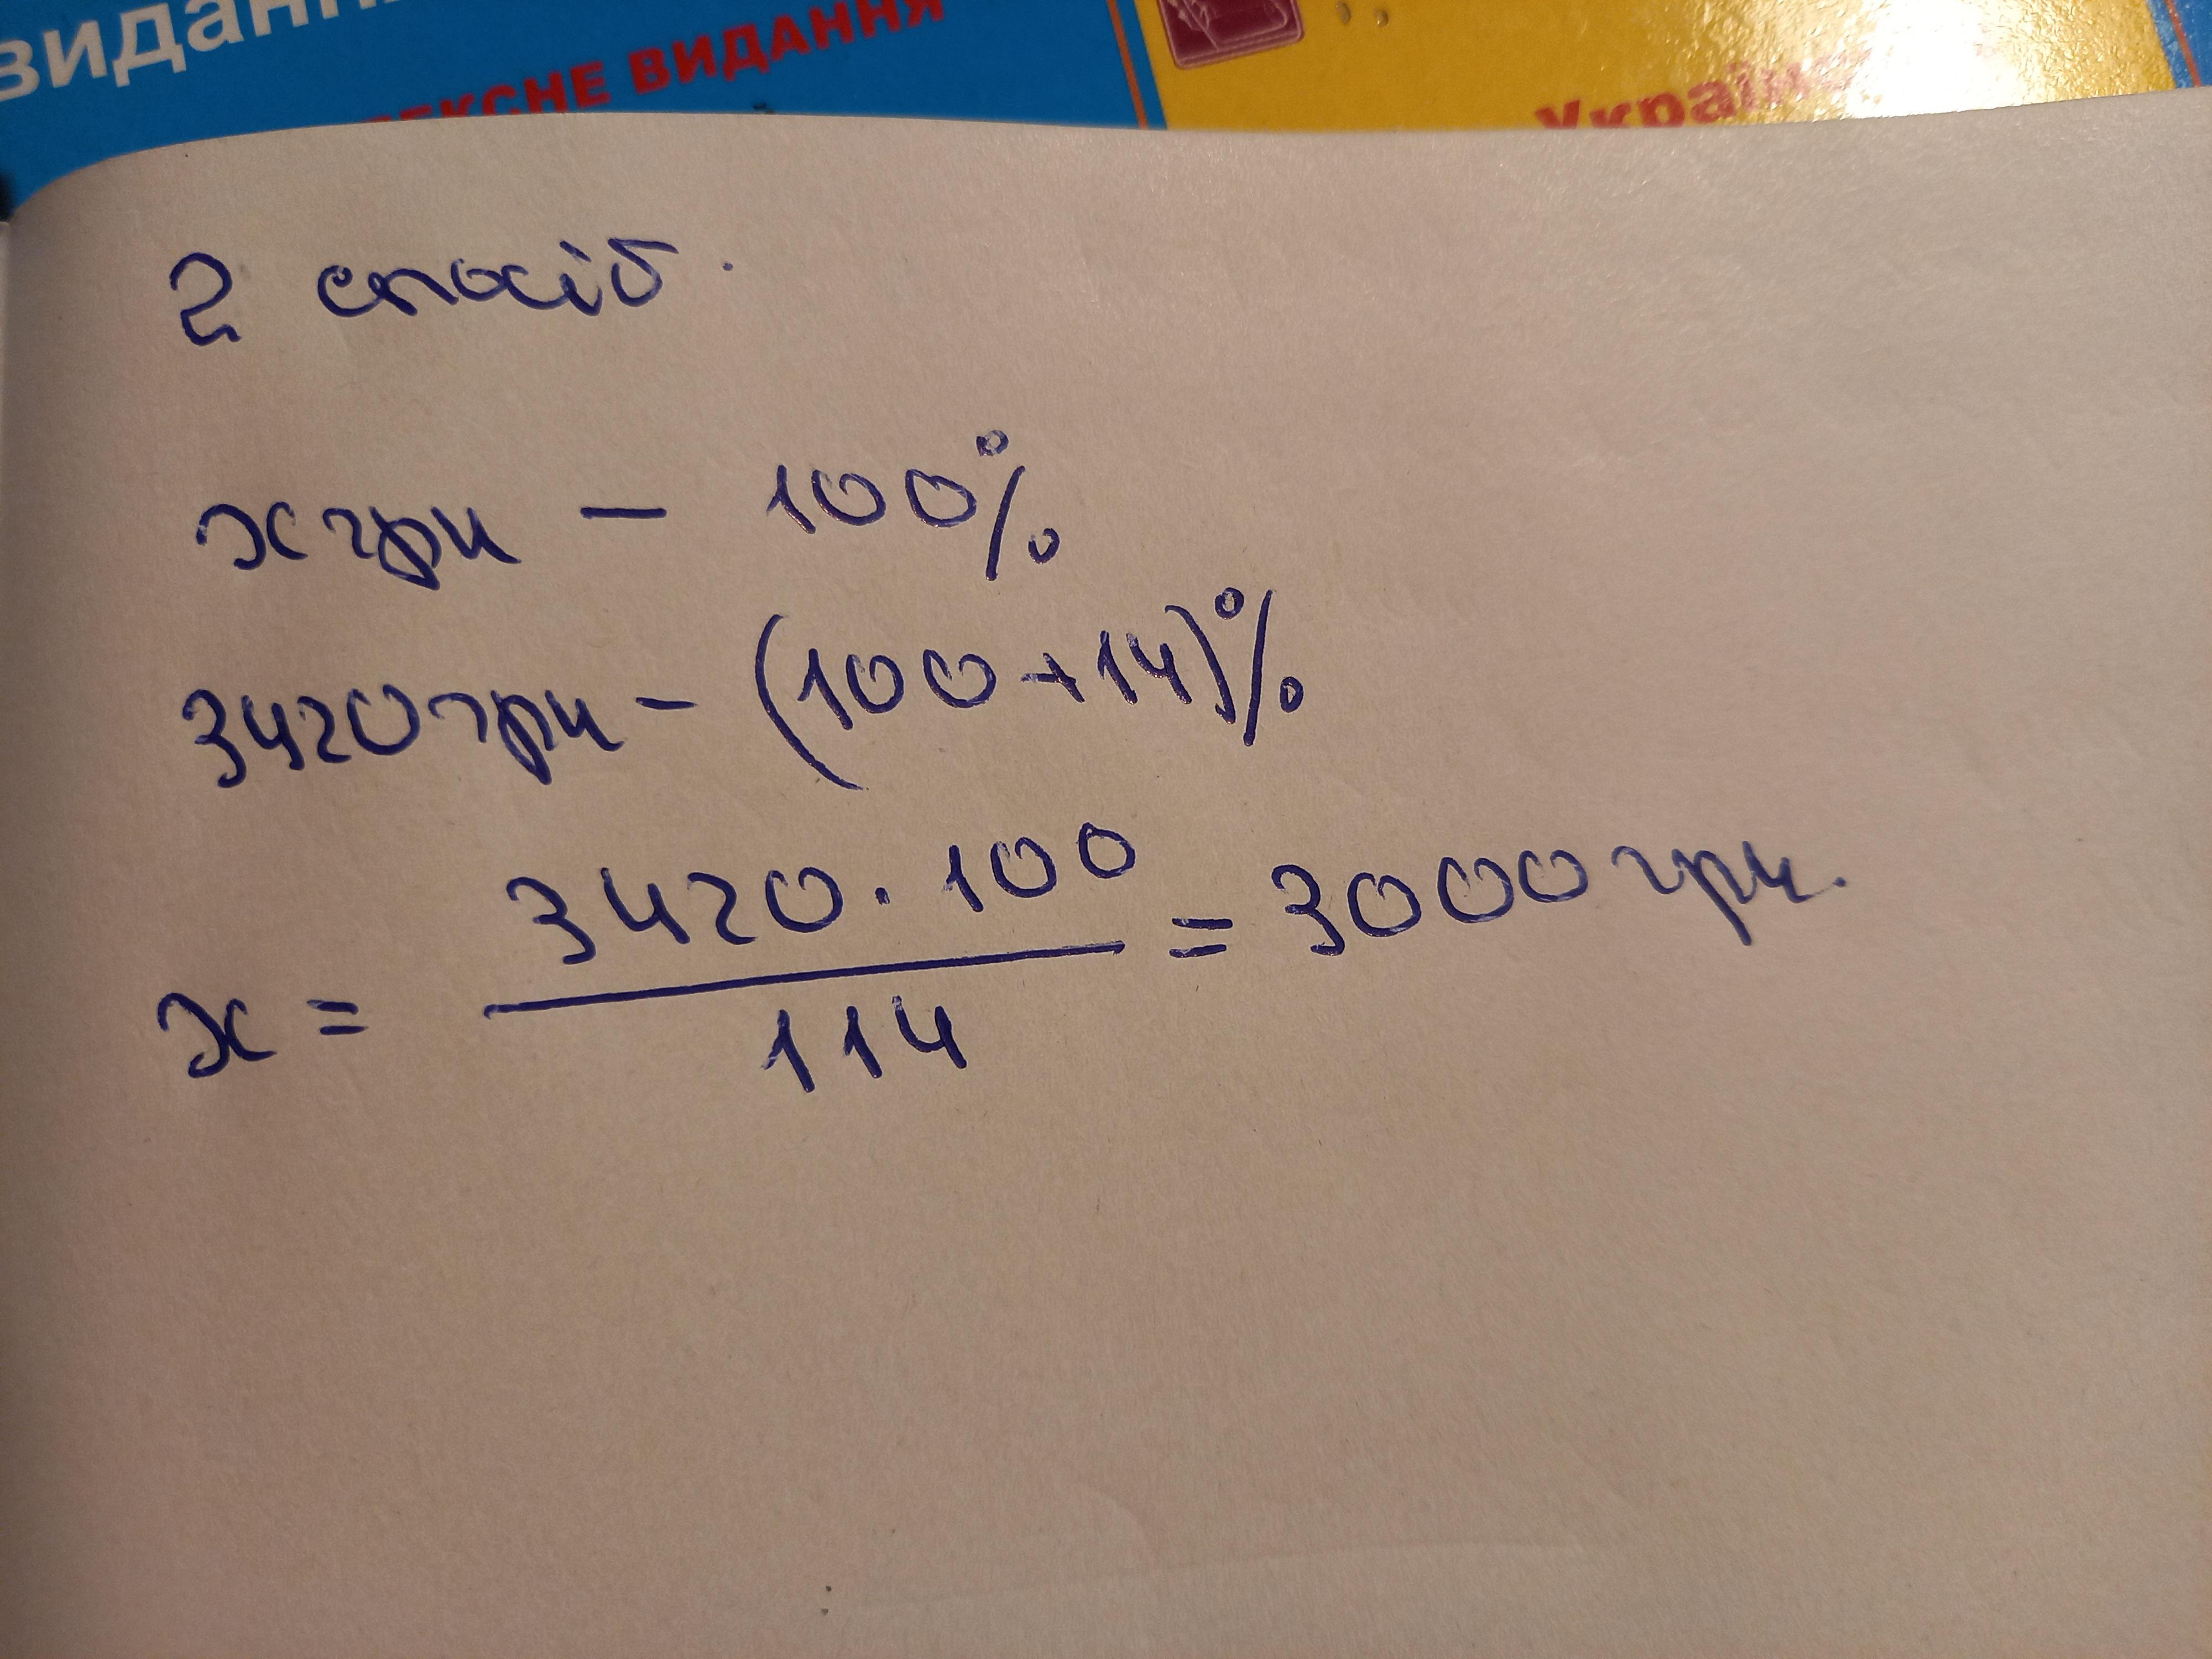 видан
ЕКСНЕ ВИДАННЯ
Україн
2 спосіб.
x грн – 100%
3420 грн – (100+14)%
x = 3420 · 100 / 114 = 3000 грн.